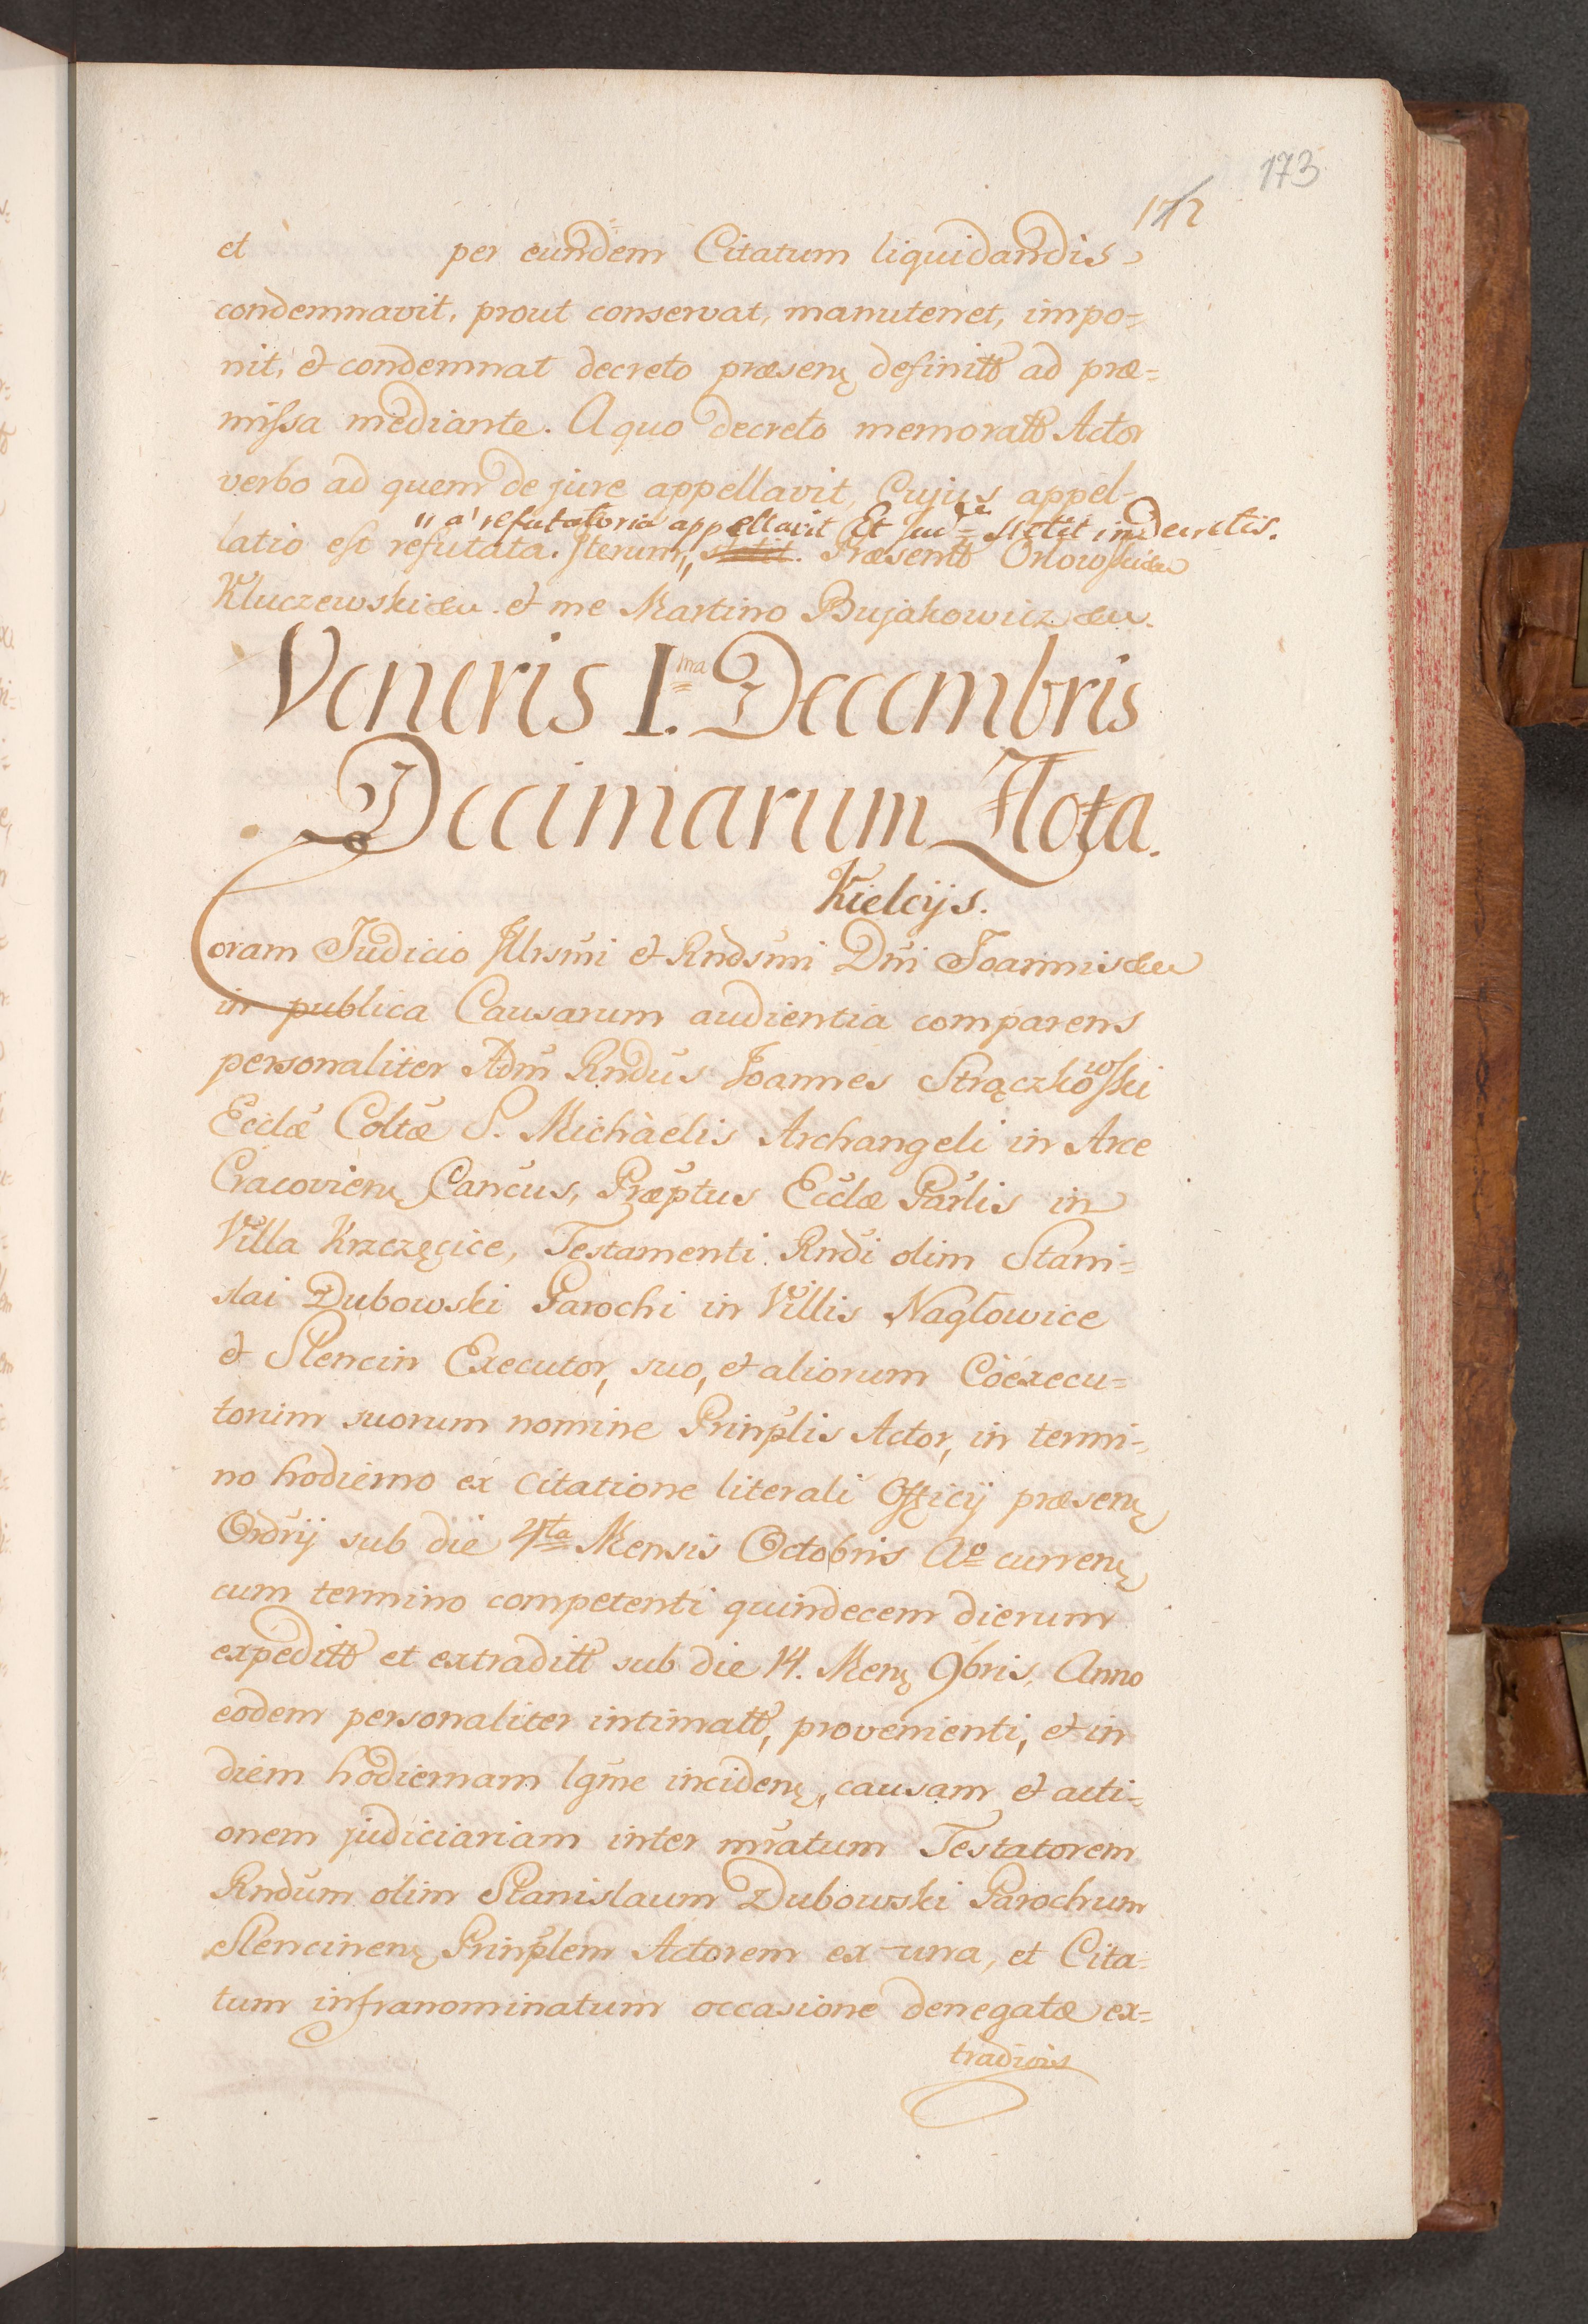 173
172
et per eundem Citatum liquidandis
condemnavit, prout conservat, manutenet, impo=
nit, et condemnat decreto præsenţ definitt ad præ=
missa mediante. A quo decreto memoratt Actor
verbo ad quem de jure appellavit, Cujus appel-
" a refutatoria appellavit Et stetit in decretis.
latio est refutata. Iterum,, stetit. Præsentt Orlowski &c.
Kluczewski &c. et me Martino Bujakowicz &c.
Veneris I.ma Decembris
Decimarum Nota.
Kielcijs.
Coram Judicio Illrsmi et Rndsmi Dni Joannis &c
in publica Causarum audientia comparens
personaliter Adm Rndus Joannes Strączkowski
Ecclæ Coltæ S. Michaelis Archangeli in Arce
Cracovienţ Cancus, Præptus Ecclæ Parlis in
Villa Krzczęcice, Testamenti Rndi olim Stani=
slai Dubowski Parochi in Villis Nagłowice
et Slencin Executor, suo, et aliorum Cöexecu=
torum suorum nomine Prinplis Actor, in termi-
no hodierno ex citatione literali Officij præsenţ
Ordrij sub die 4ta Mensis Octobris Ao currenţ
cum termino competenti quindecem dierum
expeditt et extraditt sub die 14. Menţ 9bris, Anno
eodem personaliter intimatt, provenienti, et in
diem hodiernam lgme incidenţ, causam et acti=
onem judiciariam inter mratum Testatorem
Rndum olim Stanislaum Dubowski Parochum
Slencinenţ Prinplem Actorem ex una, et Cita=
tum infranominatum occasione denegatæ ex=
tradiois